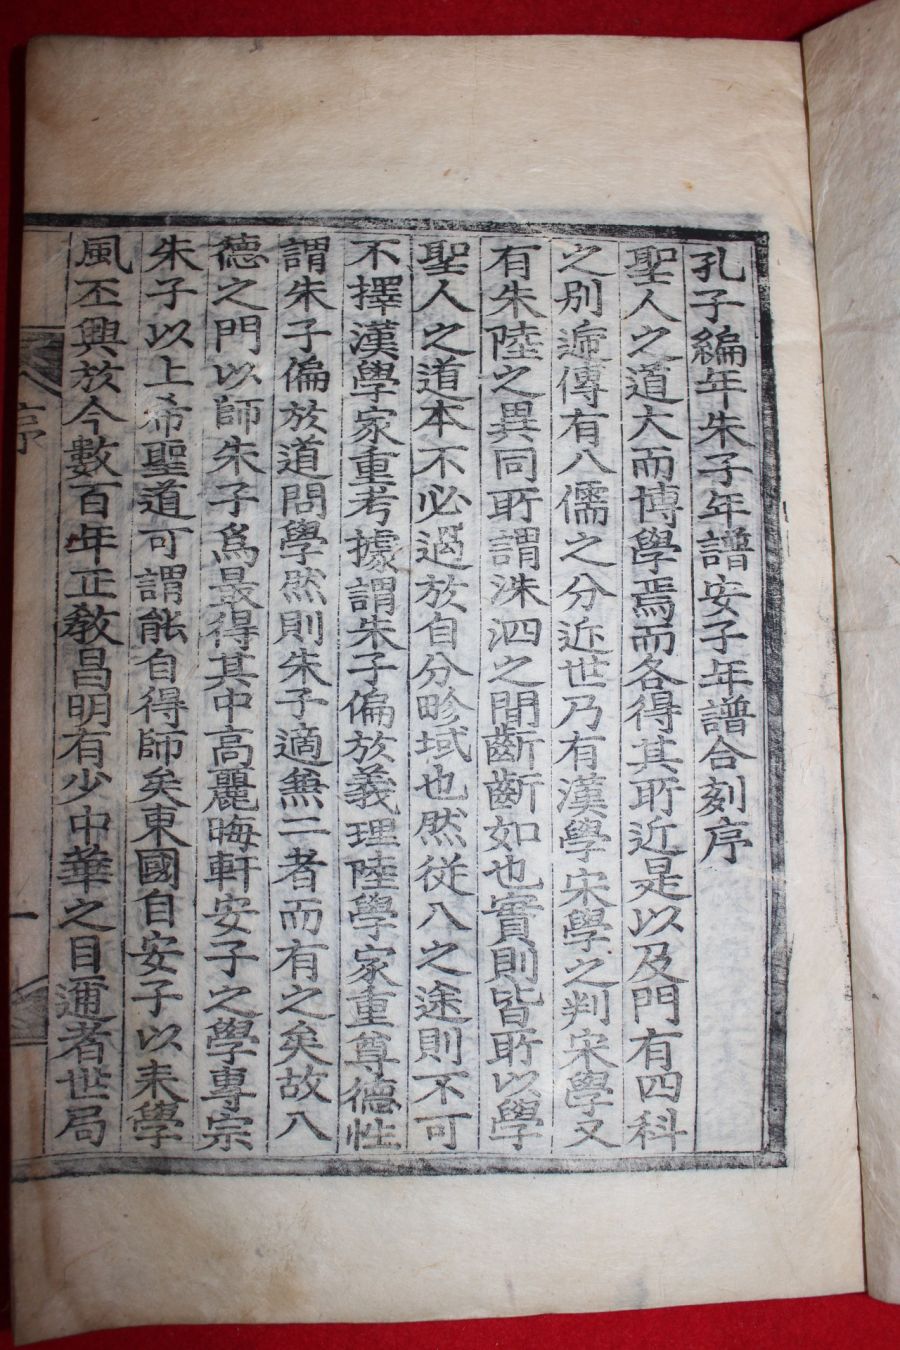 孔子編年朱子年譜安子年譜合刻序
聖人之道大而博學焉而各得其所近是以及門有四科
之别遞傳有八儒之分近世乃有漢學宋學之判宋學又
有朱陸之異同所謂洙泗之間齗齗如也實則皆所以學
聖人之道本不必過於自分畛域也然從入之途則不可
不擇漢學家重考據謂朱子偏於義理陸學家重尊德性
謂朱子偏於道問學然則朱子適無二者而有之矣故入
德之門以師朱子爲最得其中高麗晦軒安子之學專宗
朱子以上希聖道可謂能自得師矣東國自安子以来學
風丕興於今數百年正教昌明有少中華之目邇者世局
序
一